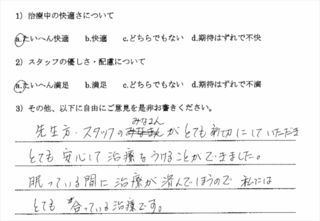 1) 治療中の快適さについて
a.たいへん快適 b.快適 c.どちらでもない d.期待はずれで不快
2) スタッフの優しさ・配慮について
a.たいへん満足 b.満足 c.どちらでもない d.期待はずれで不満
3) その他、以下に自由にご意見を是非お書きください。
みなさん
先生方・スタッフの がとても親切にしていただき
とても安心して治療をうけることができました。
眠っている間に治療が済んでしまうので 私には
とても 合っている治療です。